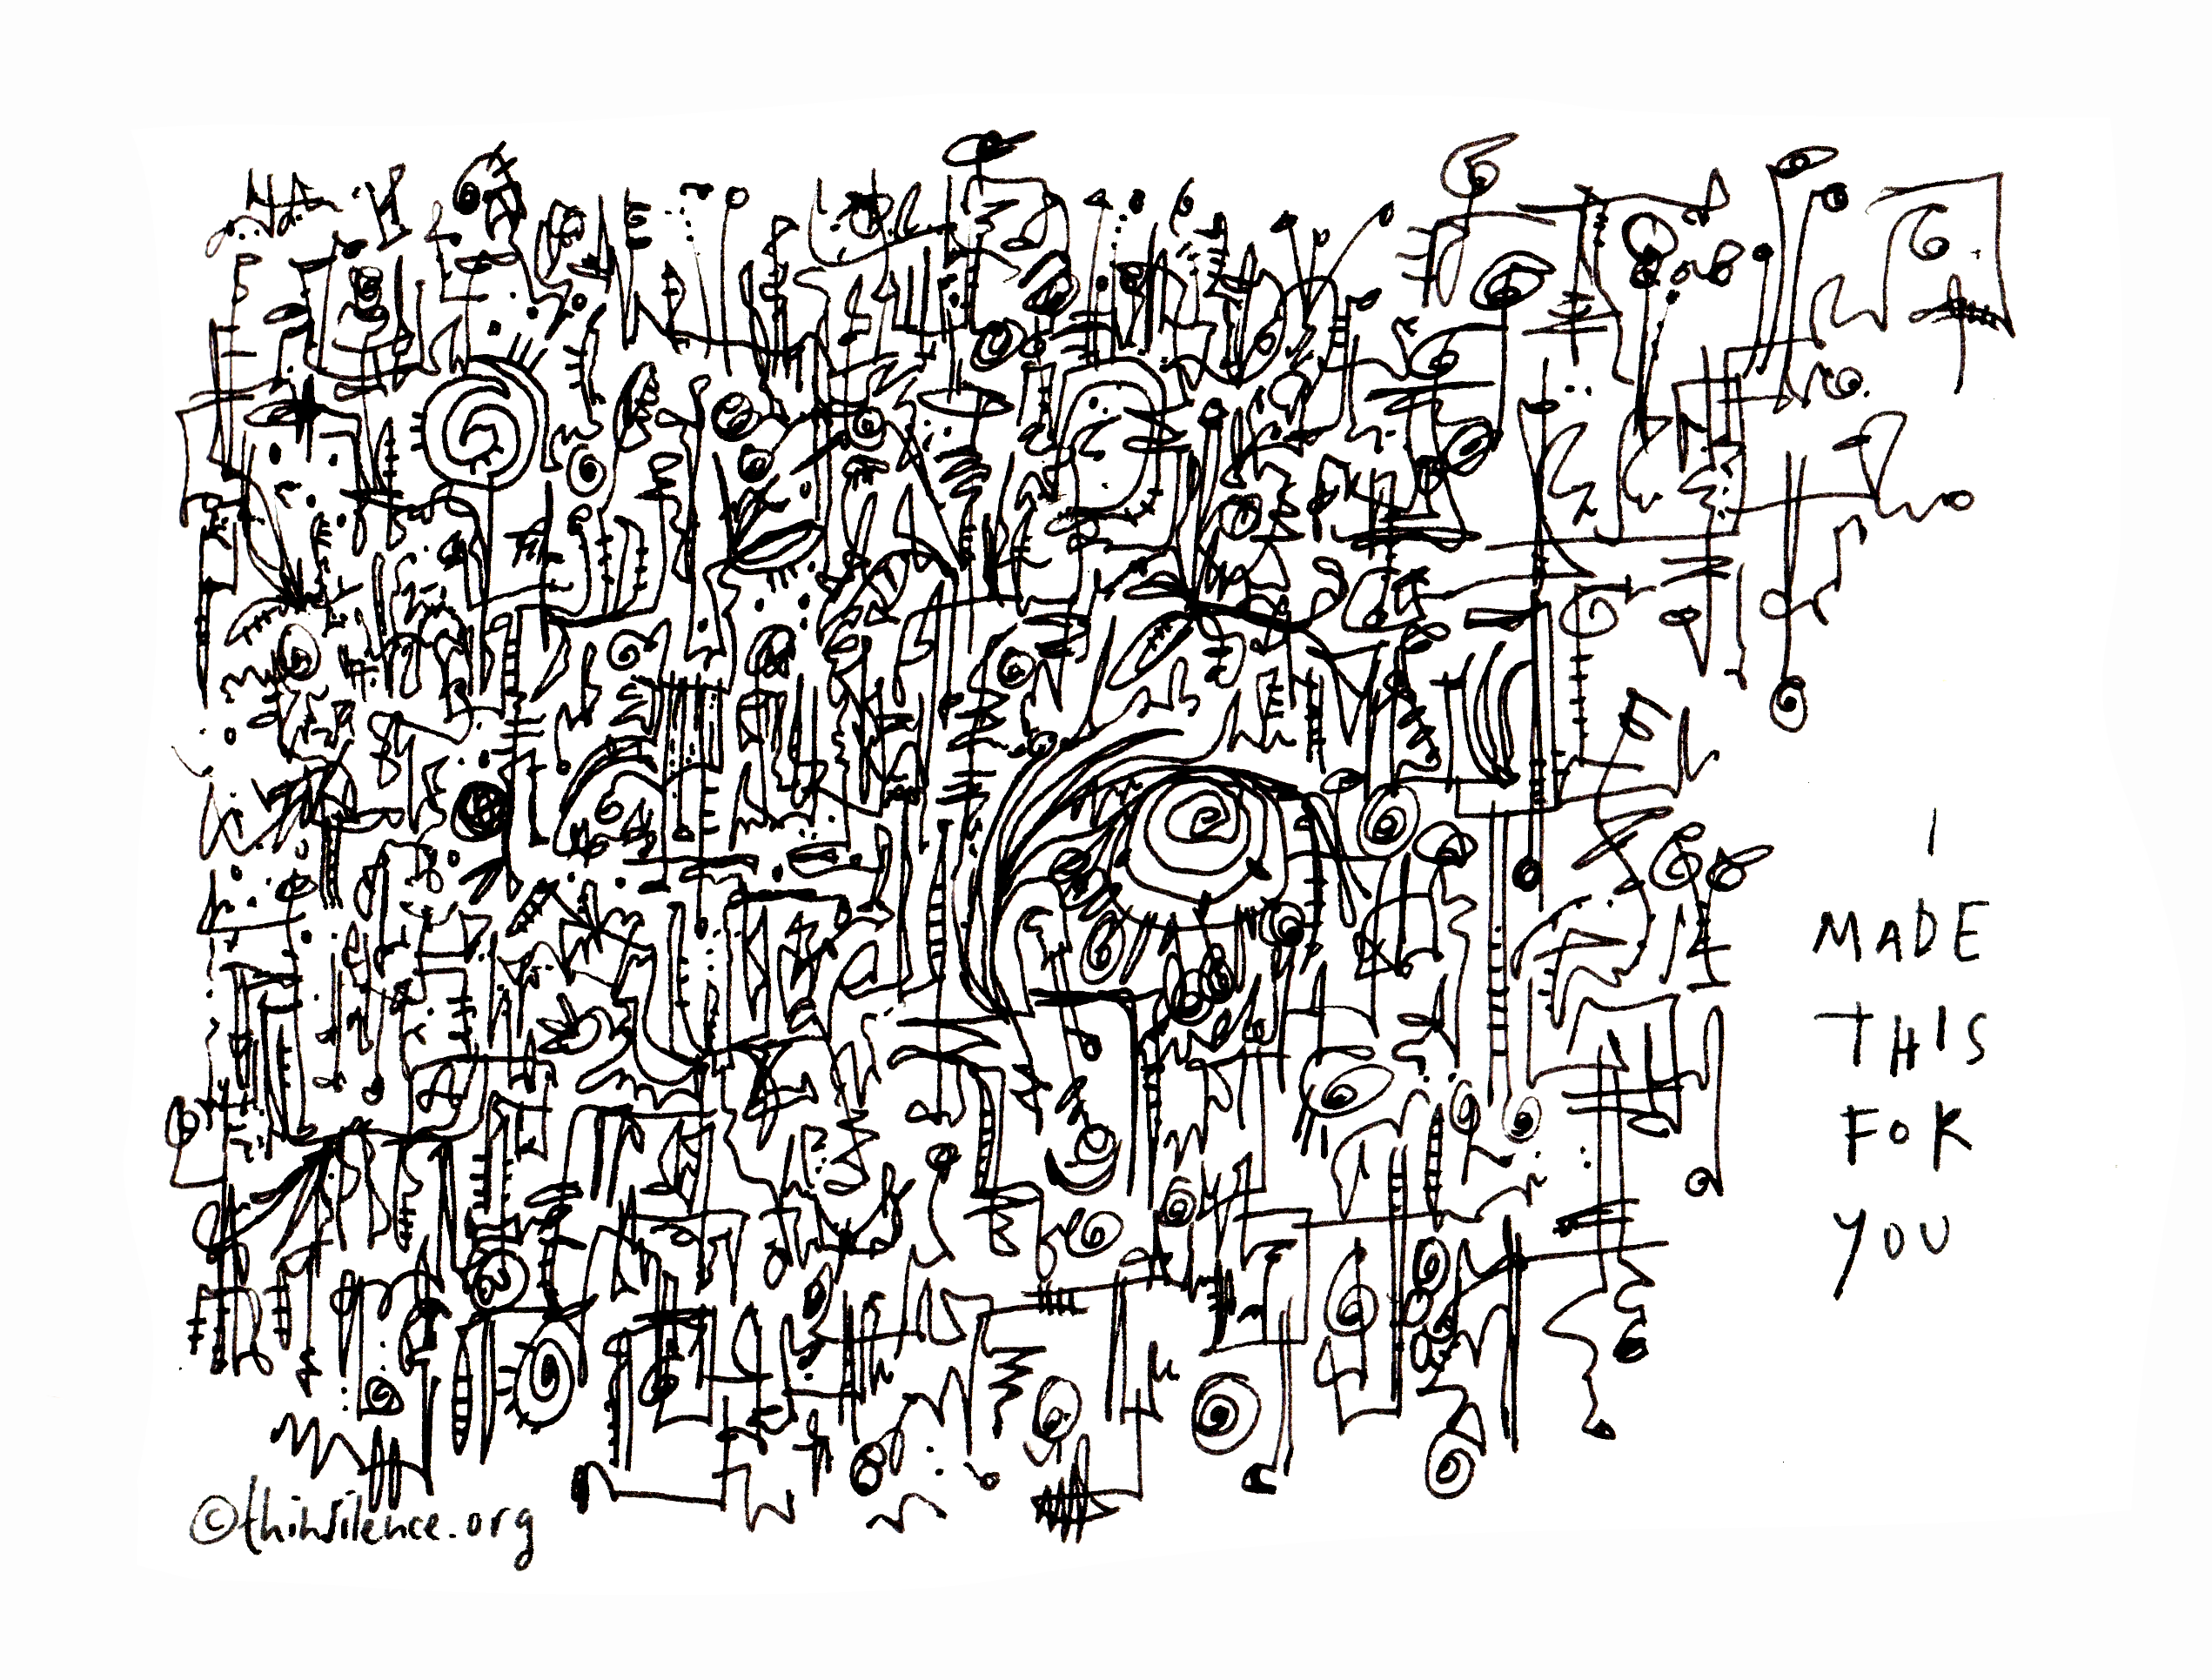 I
MADE
THIS
FOR
YOU
©thinsilence.org